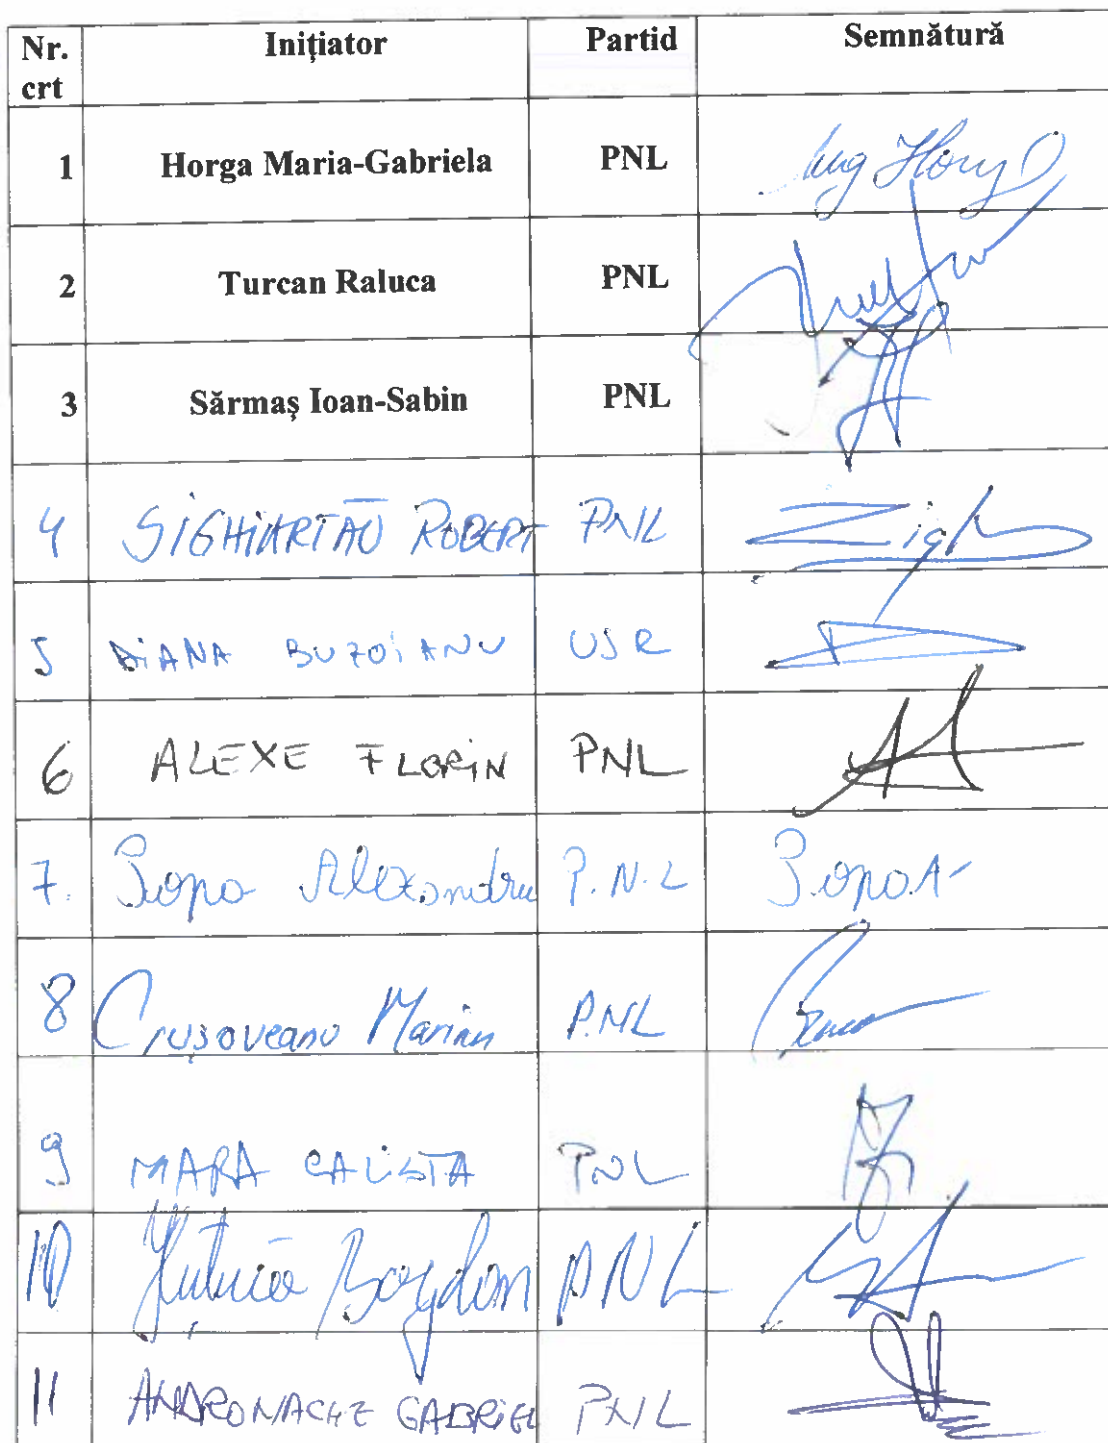 Nr. crt Inițiator Partid Semnătură
1 Horga Maria-Gabriela PNL
2 Turcan Raluca PNL
3 Sărmaș Ioan-Sabin PNL
4 SIGHIARTĂU ROBERT PNL
5 DIANA BUZOIANU USR
6 ALEXE FLORIN PNL
7. Popa Alexandru P.N.L Popa A
8 Crușoveanu Marian PNL
9 MARA CALISTA PNL
10 Bogdan PNL
11 ANDRONACHE GABRIEL PNL